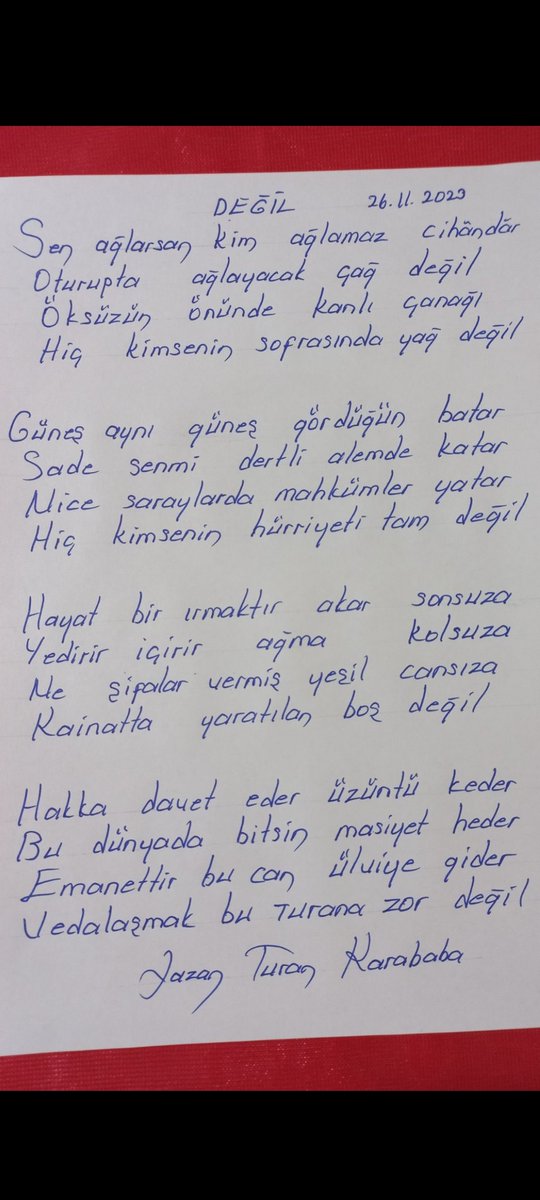 DEĞİL 26.11.2023
Sen ağlarsan kim ağlamaz cihândâr
Oturupta ağlayacak çağ değil
Öksüzün önünde kanlı çanağı
Hiç kimsenin sofrasında yağ değil
Güneş aynı güneş gördüğün batar
Sade senmi dertli alemde katar
Nice saraylarda mahkümler yatar
Hiç kimsenin hürriyeti tam değil
Hayat bir ırmaktır akar sonsuza
Yedirir içirir ağma kolsuza
Ne şipalar vermiş yeşil cansıza
Kainatta yaratılan boş değil
Hakka davet eder üzüntü keder
Bu dünyada bitsin masiyet heder
Emanettir bu can ülviye gider
Vedalaşmak bu Turana zor değil
Yazan Turan Karababa